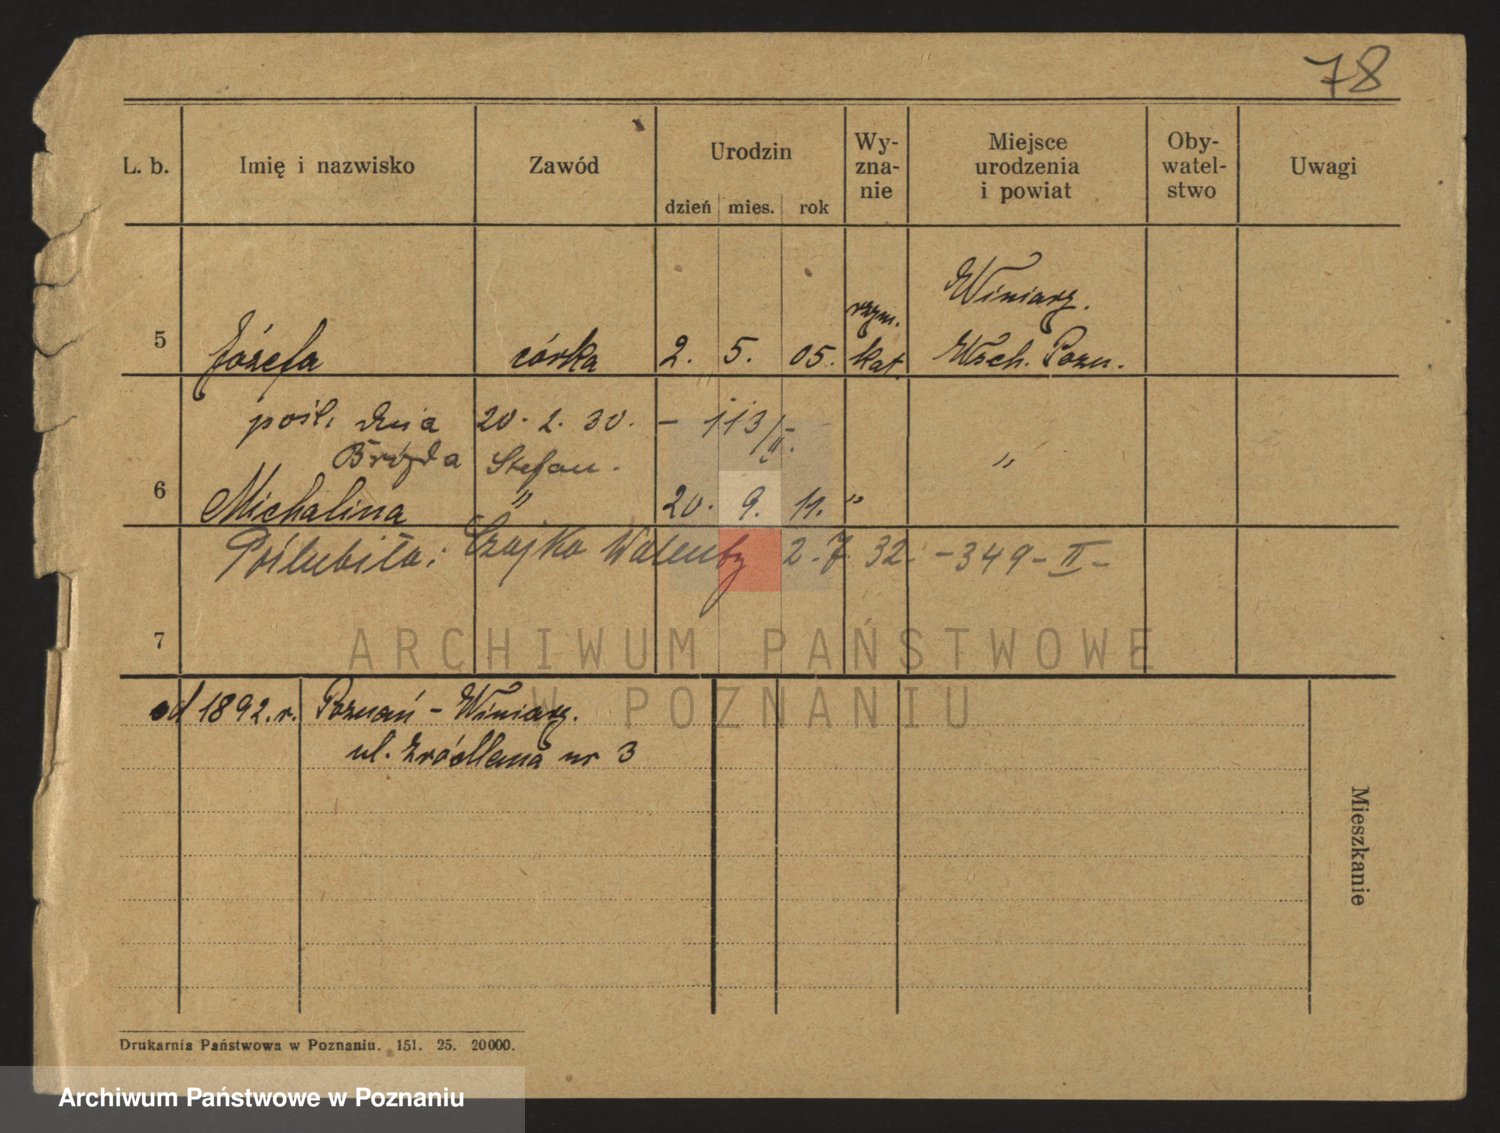 78
L. b. Imię i nazwisko Zawód Urodzin Wy-zna-nie Miejsce urodzenia i powiat Oby-watel-stwo Uwagi
dzień mies. rok
Winiary.
rzym.
5 Józefa córka 2. 5. 05. kat. Wsch. Pozn.
pośl. dnia 20. 2. 30. – 113/II.
Brózda Stefan. "
6 Michalina " 20. 9. 11. "
Poślubiła: Czajka Walenty 2. 7. 32. – 349 – II –
7
ARCHIWUM PAŃSTWOWE
W POZNANIU
od 1892. r. Poznań – Winiary.
ul. Źródlana nr 3
Mieszkanie
Drukarnia Państwowa w Poznaniu. 151. 25. 20000.
Archiwum Państwowe w Poznaniu